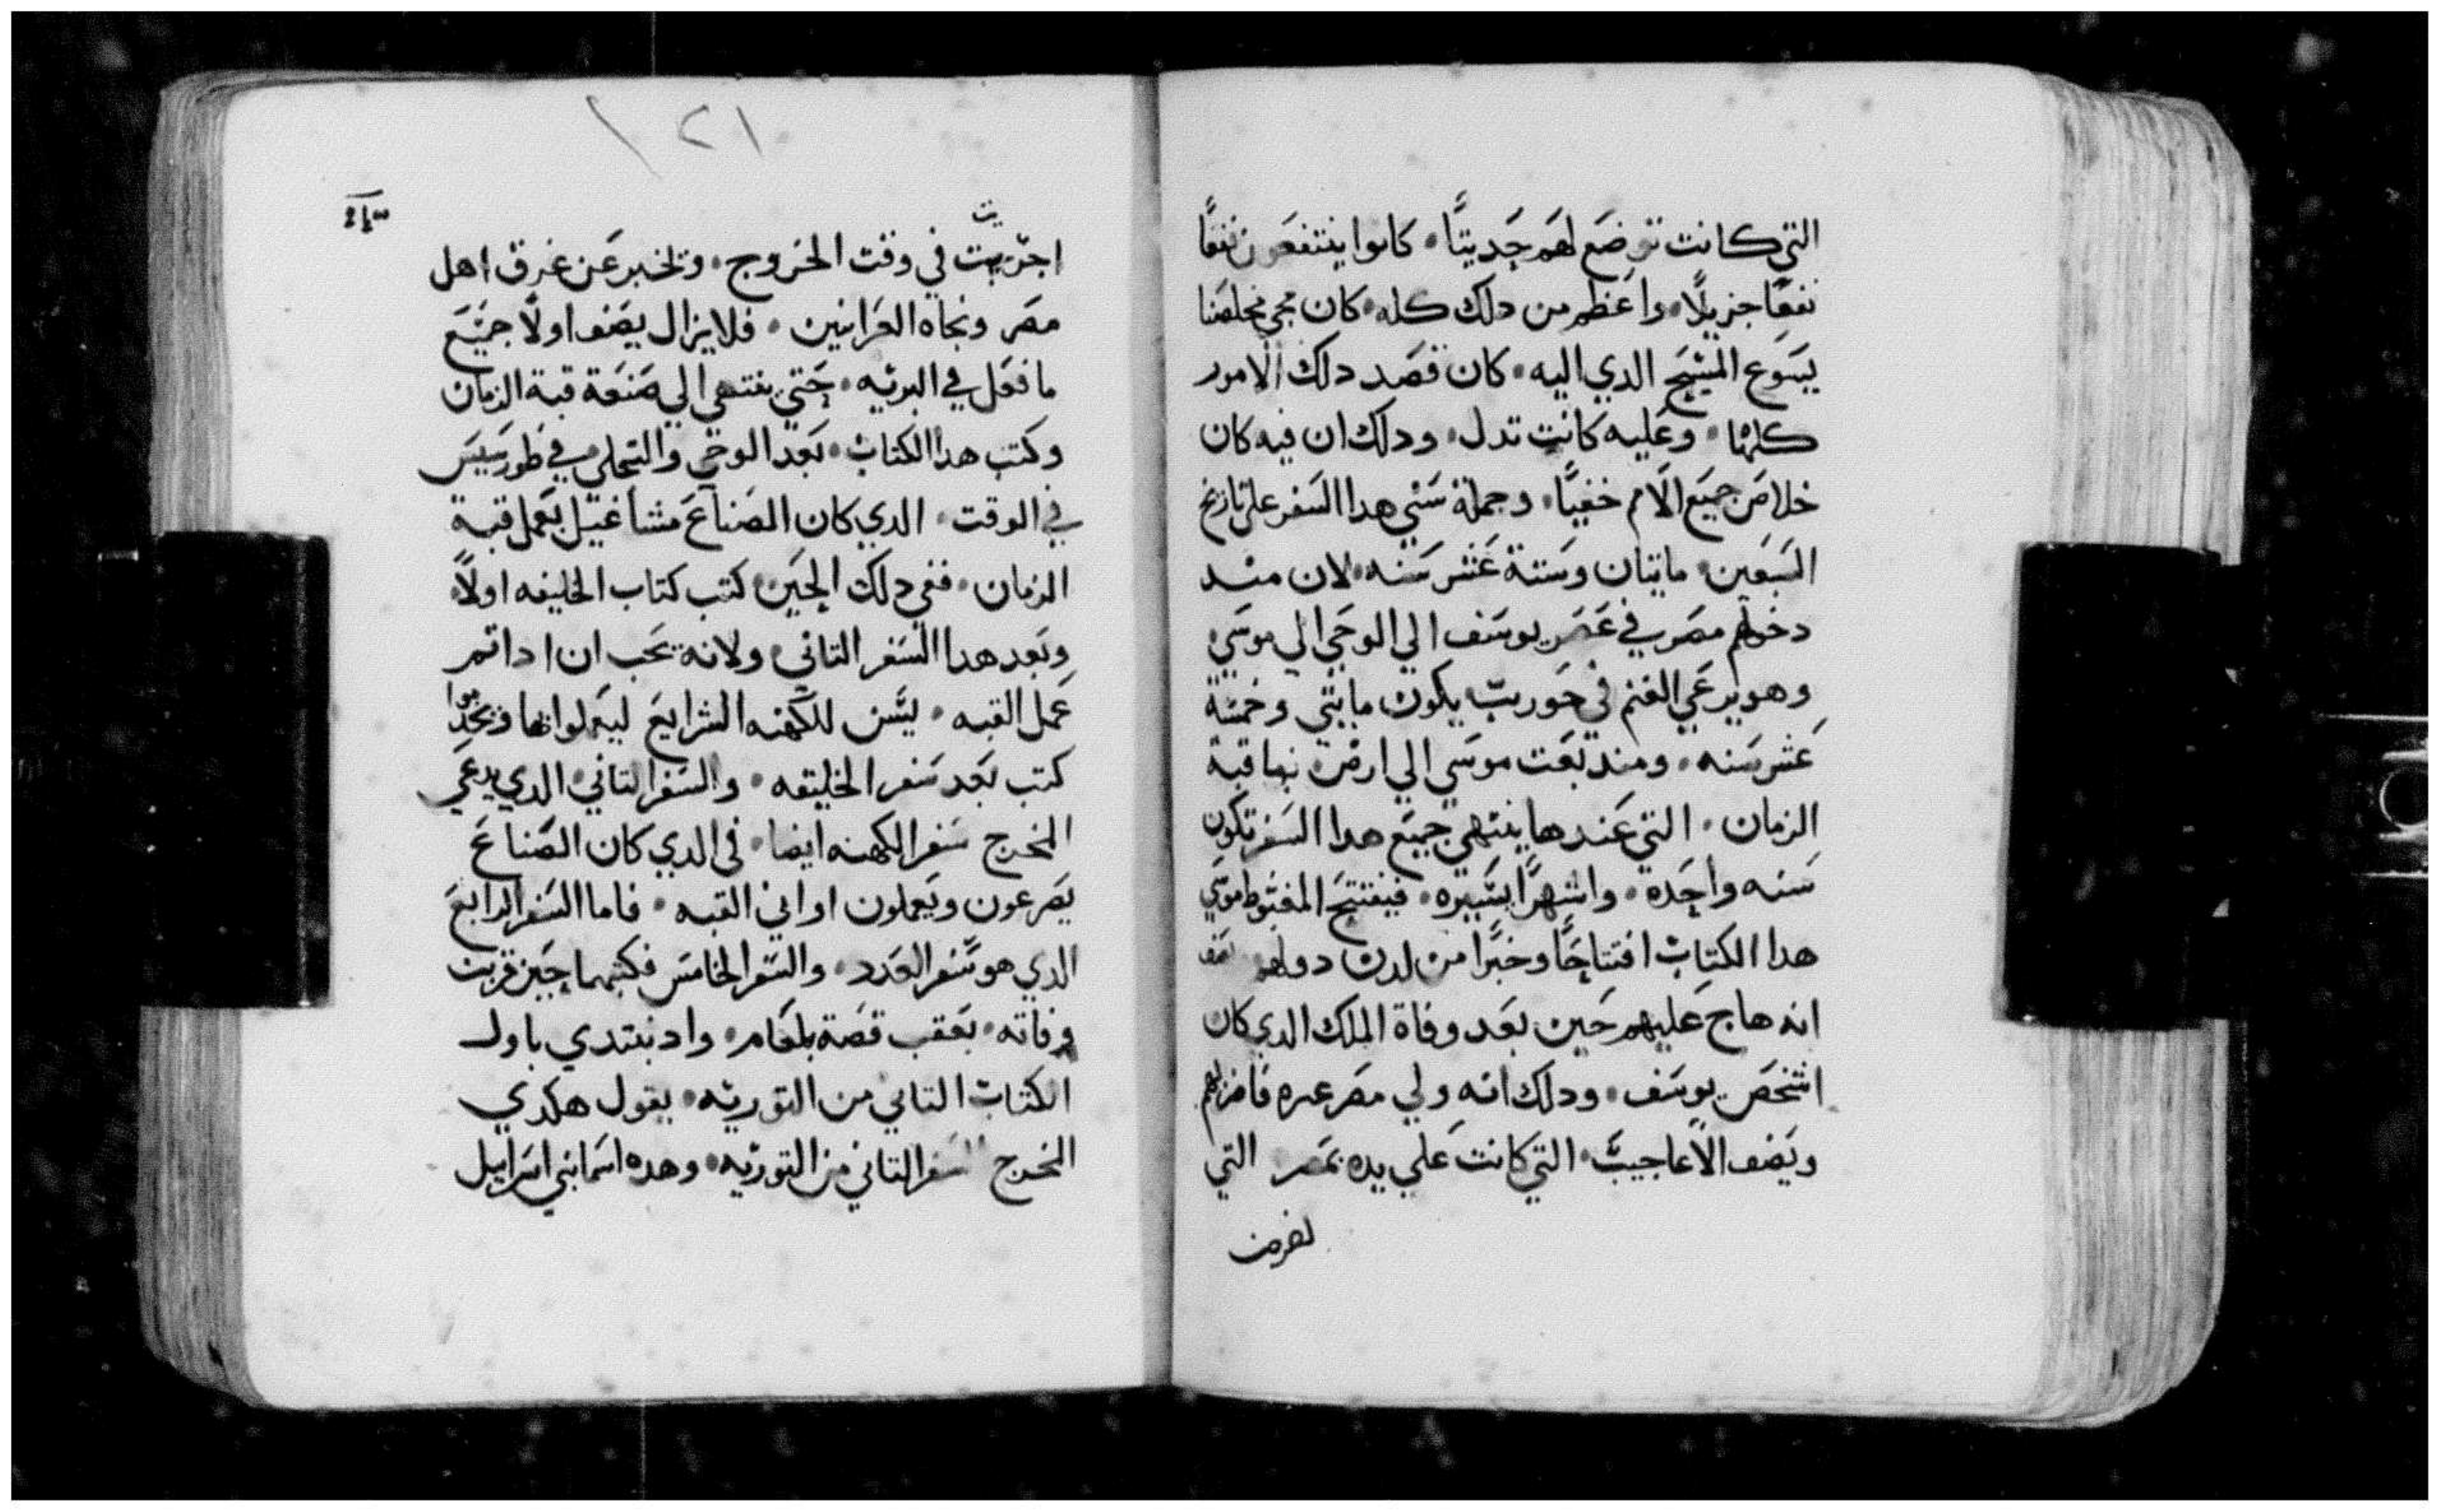 التي كانت توضع لهم حديتاً. كانوا ينتفعون نفعاً
نفعاً جزيلاً. واعظم من دلك كله. كان مجي مخلصنا
يسوع المسيح الدي اليه. كان قصد دلك الامور
كلها. وعليه كانت تدل. ودلك ان فيه كان
خلاص جميع الامم خفياً. وجملة سني هدا السفر على تاريخ
السبعين. مايتان وستة عشر سنه. لان مند
دخولهم مصر في عصر يوسف الي الوحي الي موسي
وهو يرعي الغنم في حوريب يكون مايتي وخمسة
عشر سنه. ومند بعت موسي الي ارض نها قبة
الزمان. التي عندها ينتهي جميع هدا السفر تكون
سنه واحده. واشهراً يسيره. فيفتتح المغبوط موسي
هدا الكتاب افتتاحاً وخبراً من لدن
انه هاج عليهم حين بعد وفاة الملك الدي كان
اشخص يوسف. ودلك انه ولي مصر غيره فاضرهم
ويصف الاعاجيب. التي كانت علي يده بمصر التي
١٢١
اجريت في وقت الخروج. وتخبر عن غرق اهل
مصر ونجاه العبرانيين. فلا يزال يصف اولاً جميع
ما فعل في البريه. حتي ينتهي الي صنعة قبة الزمان
وكتب هدا الكتاب. بعد الوحي والتجلي في طور
في الوقت. الدي كان الصناع متشاغيل بعمل قبة
الزمان. ففي دلك الحين كتب كتاب الخليقه اولاً.
وبعد هدا السفر التاني. ولانه يجب ان ادا تم
عمل القبه. يسن للكهنه الشرايع ليعملوا بها
كتب بعد سفر الخليقه. والسفر التاني الدي يدعي
المخرج سفر الكهنه ايضا. في الدي كان الصناع
يصرعون ويعملون اواني القبه. فاما السفر الرابع
الدي هو سفر العدد. والسفر الخامس فكتبهما حين قربت
وفاته. بعقب قصة بلعام. واد نبتدي باول
الكتاب التاني من التوريه. يقول هكدي
المخرج السفر التاني من التوريه. وهده اسما بني اسراييل